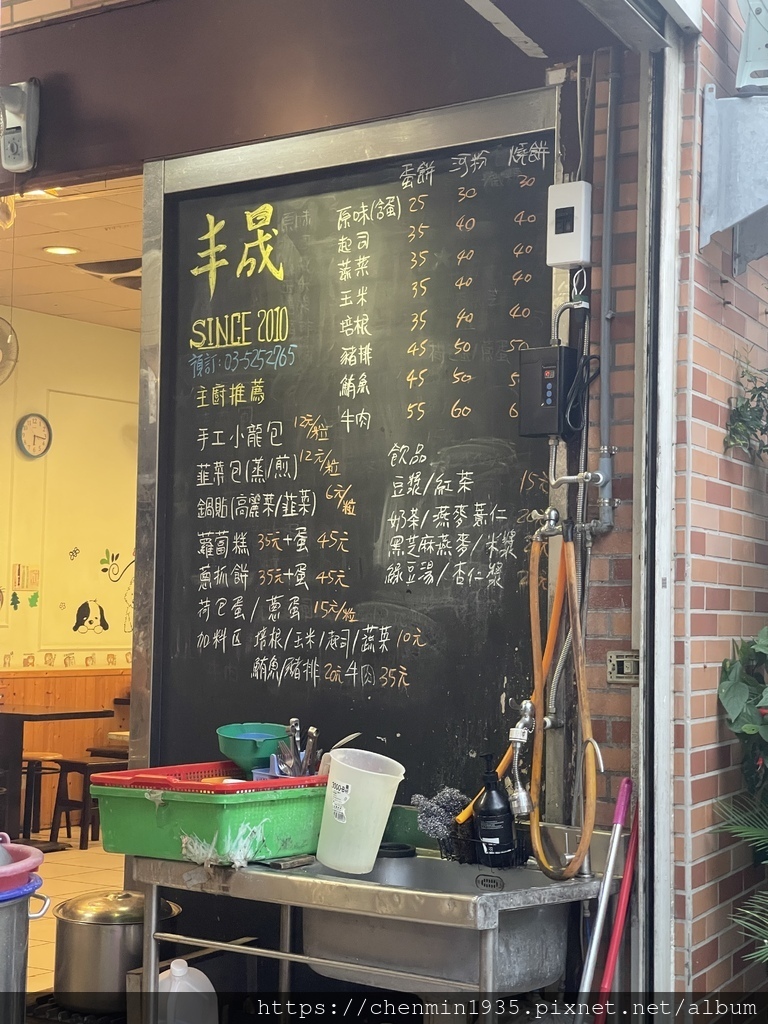 丰晟
SINCE 2010
預訂:03-5252765
主廚推薦
手工小龍包 12元/粒
韮菜包(蒸/煎) 12元/粒
鍋貼(高麗菜/韮菜) 6元/粒
蘿蔔糕 35元+蛋 45元
蔥抓餅 35元+蛋 45元
荷包蛋/蔥蛋 15元/粒
加料区 培根/玉米/起司/蔬菜 10元
鮪魚/豬排 20元 牛肉 35元
蛋餅 河粉 燒餅
原味(含蛋) 25 30 30
起司 35 40 40
蔬菜 35 40 40
玉米 35 40 40
培根 35 40 40
豬排 45 50 50
鮪魚 45 50
牛肉 55 60
飲品
豆漿/紅茶 15元
奶茶/燕麥薏仁
黑芝麻燕麥/米漿
綠豆湯/杏仁漿
https://chenmin1935.pixnet.net/album